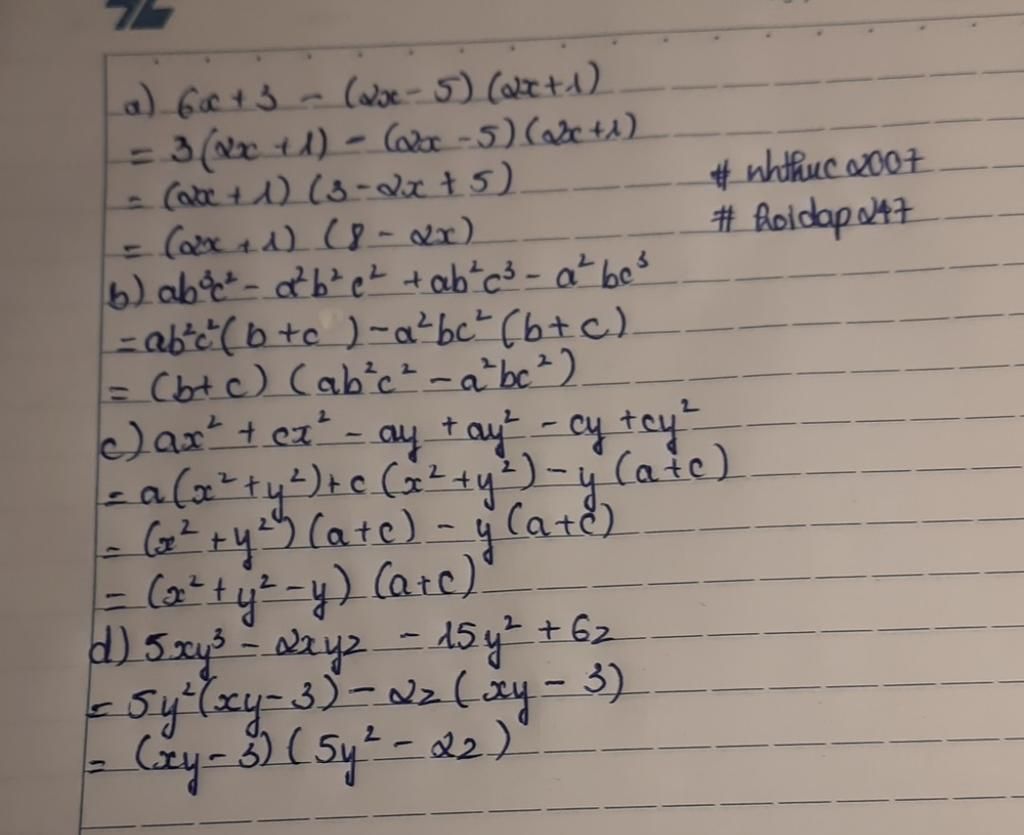 a) 6x + 3 - (2x - 5) (2x + 1)
= 3(2x + 1) - (2x - 5) (2x + 1)
= (2x + 1) (3 - 2x + 5)
= (2x + 1) (8 - 2x)
# nhthuc2007
# hoidap247
b) ab³c² - a²b²c² + ab²c³ - a²bc³
= ab²c²(b + c) - a²bc² (b + c)
= (b + c) (ab²c² - a²bc²)
c) ax² + cx² - ay + ay² - cy + cy²
= a(x² + y²) + c (x² + y²) - y (a + c)
= (x² + y²) (a + c) - y (a + c)
= (x² + y² - y) (a + c)
d) 5xy³ - 2xyz - 15y² + 6z
= 5y²(xy - 3) - 2z (xy - 3)
= (xy - 3) (5y² - 2z)